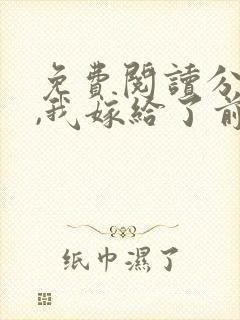 免費閱讀分
,我嫁給了前
纸巾濕了